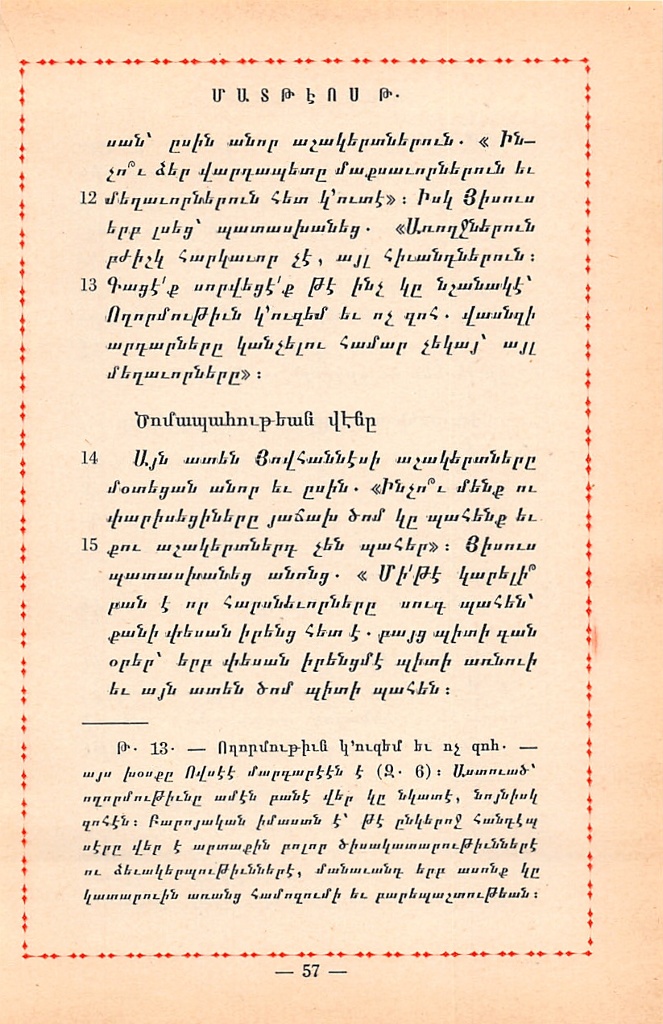 ՄԱՏԹԷՈՍ Թ.
սան՝ ըսին անոր աշակերտներուն. « Ին–
չո՞ւ ձեր վարդապետը մաքսաւորներուն եւ
12 մեղաւորներուն հետ կ՚ուտէ»։ Իսկ Յիսուս
երբ լսեց՝ պատասխանեց. «Առողջներուն
բժիշկ հարկաւոր չէ, այլ հիւանդներուն։
13 Գացէ՛ք սորվեցէ՛ք թէ ինչ կը նշանակէ՝
Ողորմութիւն կ՚ուզեմ եւ ոչ զոհ. վասնզի
արդարները կանչելու համար չեկայ՝ այլ
մեղաւորները»։
Ծոմապահութեան վէճը
14 Այն ատեն Յովհաննէսի աշակերտները
մօտեցան անոր եւ ըսին. «Ինչո՞ւ մենք ու
փարիսեցիները յաճախ ծոմ կը պահենք եւ
15 քու աշակերտներդ չեն պահեր»։ Յիսուս
պատասխանեց անոնց. « Մի՛թէ կարելի՞
բան է որ հարսնեւորները սուգ պահեն՝
քանի փեսան իրենց հետ է. բայց պիտի գան
օրեր՝ երբ փեսան իրենցմէ պիտի առնուի
եւ այն ատեն ծոմ պիտի պահեն։
Թ. 13. — Ողորմութիւն կ՚ուզեմ եւ ոչ զոհ. —
այս խօսքը Ովսէէ մարգարէէն է (Զ. 6)։ Աստուած՝
ողորմութիւնը ամէն բանէ վեր կը նկատէ, նոյնիսկ
զոհէն։ Բարոյական իմաստն է՝ թէ ընկերոջ հանդէպ
սէրը վեր է արտաքին բոլոր ծիսակատարութիւններէ
ու ձեւակերպութիւններէ, մանաւանդ երբ ասոնք կը
կատարուին առանց համոզումի եւ բարեպաշտութեան։
— 57 —